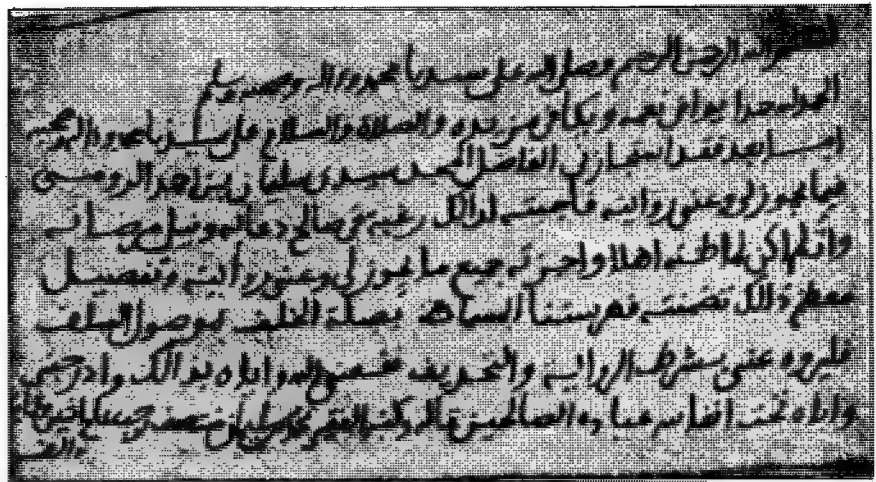 الله الرحمن الرحيم وصلى الله على سيدنا محمد وءاله وصحبه وسلم
الحمد لله حمدا يوافي نعمه ويكافي مزيده والصلاة والسلام على سيدنا محمد وءاله وصحبه
اما بعد فقد استجازني الفاضل سيدي سليمان بن احمد الرومي
فيما يجوز لي وعني روايته فأجبته لذالك رغبة في صالح دعائه ونيل مرضاته
وان لم اكن لما ظنه اهلا واجزته جميع ما يجوز لي وعني روايته وتفصيل
معظم ذالك تضمنته فهرستنا بصلة الخلف بموصول السلف
فليروه عني بشرط الرواية والتحديث نفعني الله واياه بذالك وادرجني
واياه تحت انفاس عباده الصالحين قاله وكتبه الفقير محمد بن سليمان